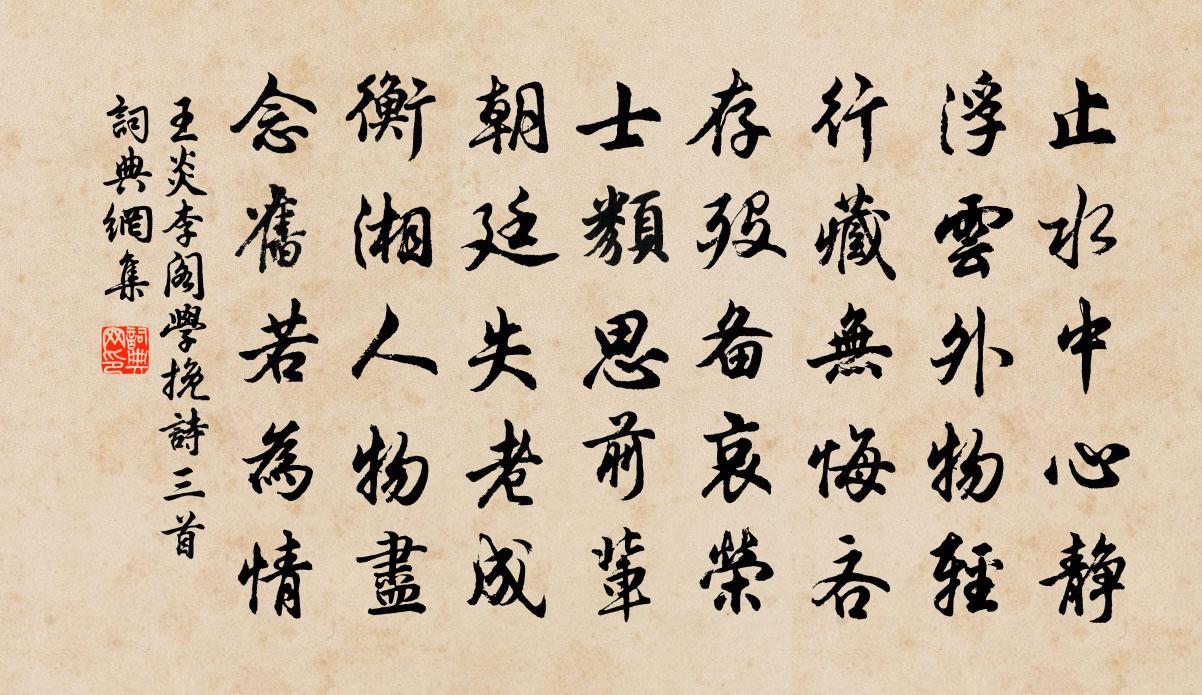 止水中心静
浮雲外物輕
行藏無悔吝
存歿备哀榮
士類思前輩
朝廷失老成
衡湘人物盡
念舊若為情
王炎李阁學挽詩三首
詞典網集
詞典网印